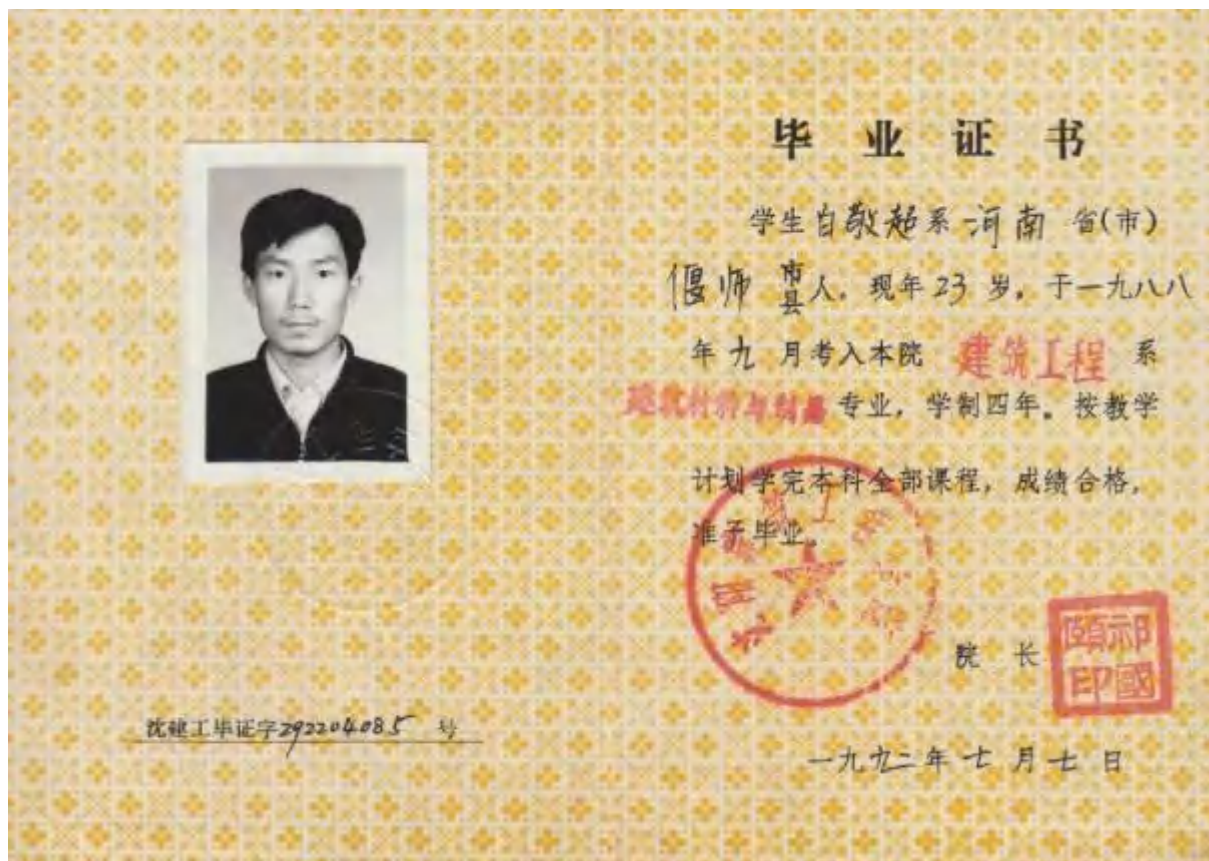 毕业证书
学生白敬超系河南省(市)
偃师市县人,现年23岁,于一九八八
年九月考入本院建筑工程系
建筑材料与制品专业,学制四年。按教学
计划学完本科全部课程,成绩合格,
准予毕业。
院长
祁國頤印
一九九二年七月七日
沈建工毕证字292204085号